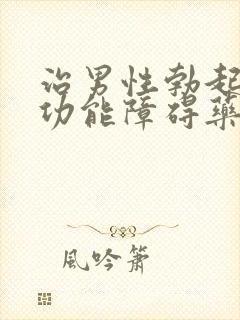 治男性勃起
功能障碍药
風吟簫